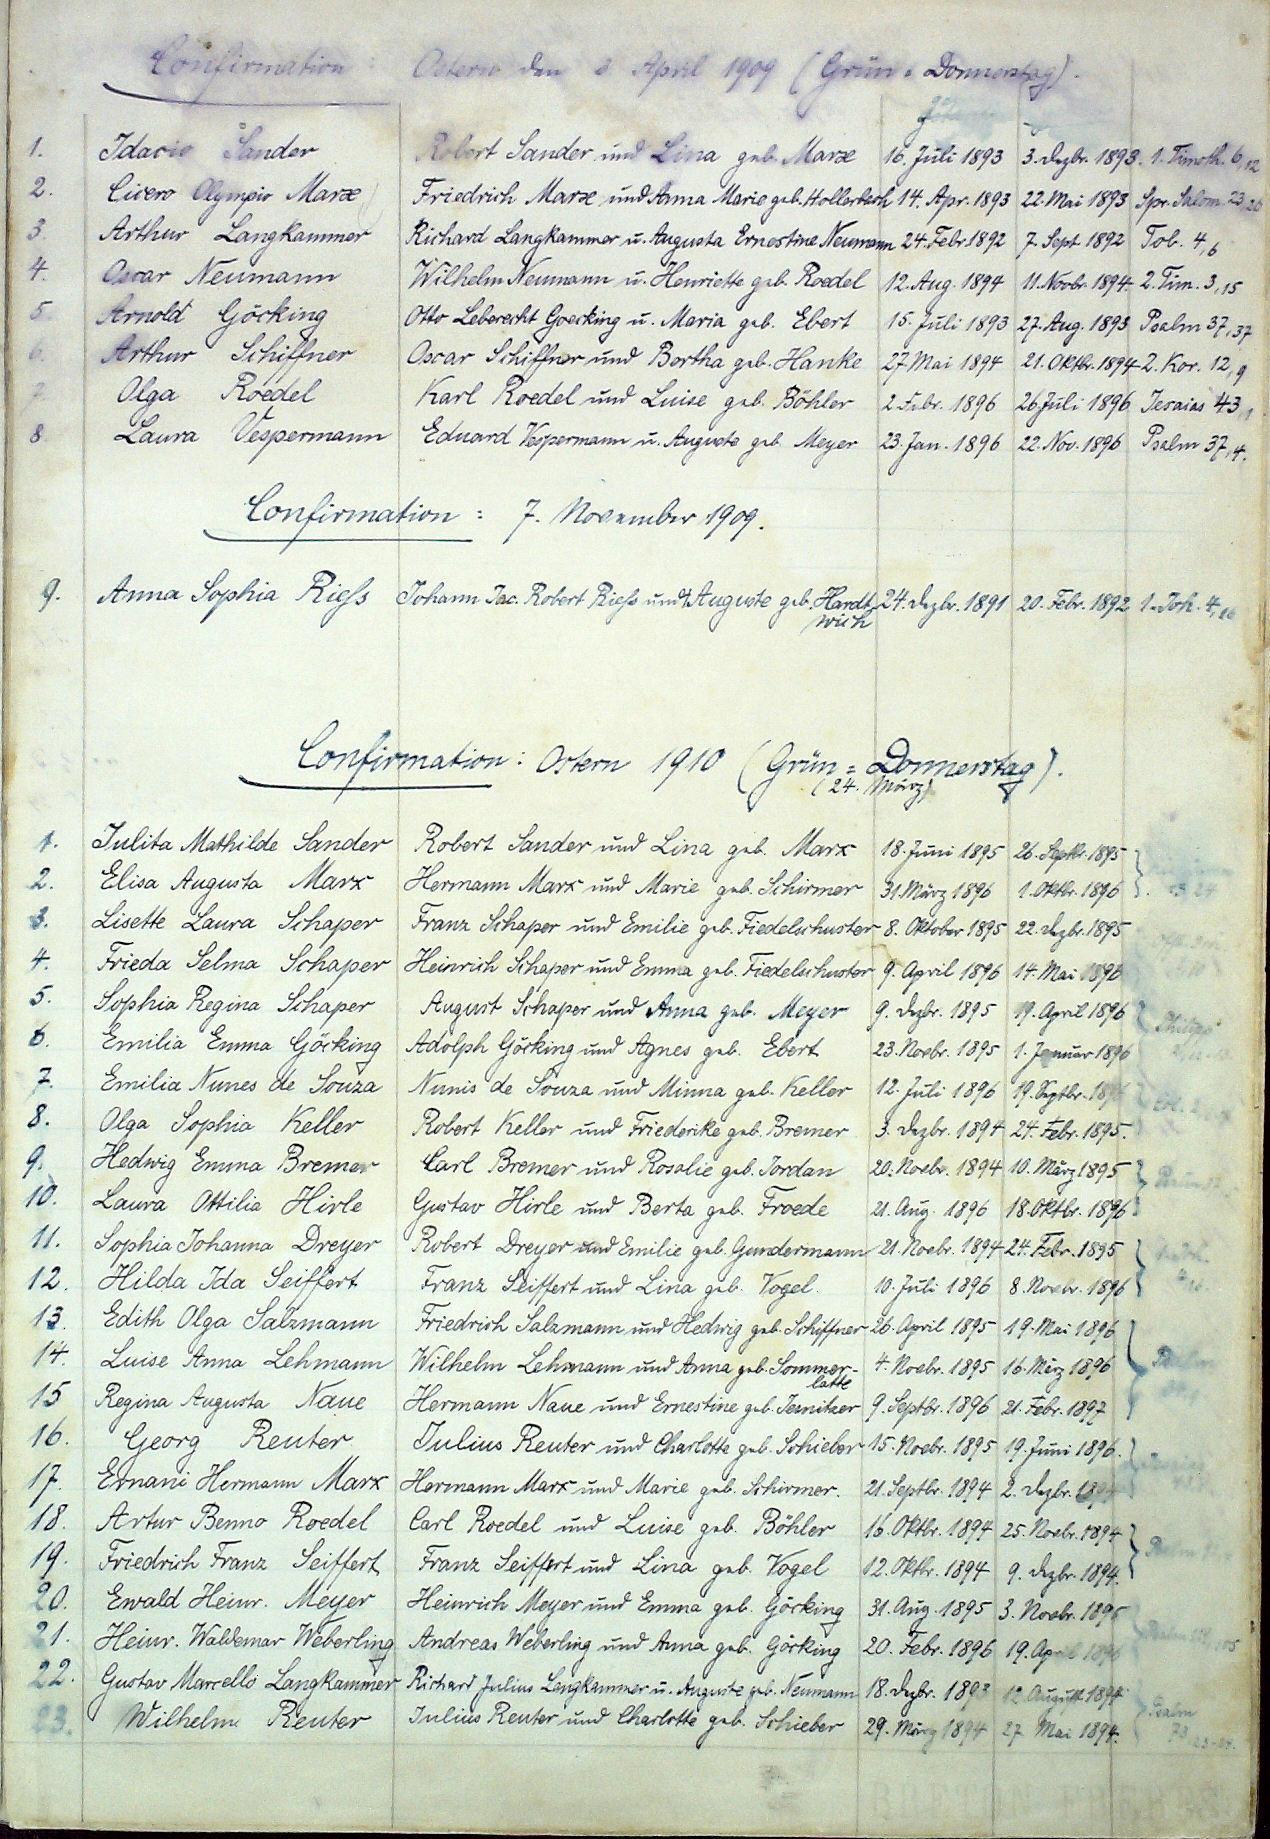 Confirmation: Ostern den 8 April 1909 (Grün = Donnerstag).
1. Idacio Sander Robert Sander und Lina geb. Marx 16. Juli 1893 3. Dezbr. 1893. 1. Timoth. 6,12
2. Cicero Olympio Marx Friedrich Marx und Anna Marie geb. Hollerbach 14. Apr. 1893 22. Mai 1893 Spr. Salom. 23,26
3. Arthur Langkammer Richard Langkammer u. Augusta Ernestine Neumann 24. Febr. 1892 7. Sept 1892 Tob. 4,6
4. Oscar Neumann Wilhelm Neumann u. Henriette geb. Roedel 12. Aug. 1894 11. Novbr. 1894 2. Tim. 3,15
5. Arnold Göcking Otto Leberecht Goecking u. Maria geb. Ebert 15. Juli 1893 27. Aug. 1893 Psalm 37,37
6. Arthur Schiffner Oscar Schiffner und Bertha geb. Hanke 27 Mai 1894 21. Oktbr. 1894 2. Kor. 12,9
7. Olga Roedel Karl Roedel und Luise geb. Böhler 2. Febr. 1896 26 Juli 1896 Jesaias 43,1
8. Laura Vespermann Eduard Vespermann u. Auguste geb. Meyer 23. Jan. 1896 22. Nov. 1896 Psalm 37,4.
Confirmation: 7. November 1909.
9. Anna Sophia Rieß Johann Jac. Robert Rieß und Auguste geb. Hardt- 24. Dezbr. 1891 20. Febr. 1892 1. Joh. 4,16
wich
Confirmation: Ostern 1910 (Grün = Donnerstag).
(24. März)
1. Julita Mathilde Sander Robert Sander und Lina geb. Marx 18. Juni 1895 26. Septbr. 1895
2. Elisa Augusta Marx Hermann Marx und Marie geb. Schirmer 31. März 1896 1. Oktbr. 1896
3. Lisette Laura Schaper Franz Schaper und Emilie geb. Fiedelschuster 8. Oktober 1895 22. Dezbr. 1895
4. Frieda Selma Schaper Heinrich Schaper und Emma geb. Fiedelschuster 9. April 1896 14. Mai 1896
5. Sophia Regina Schaper August Schaper und Anna geb. Meyer 9. Dezbr. 1895 19. April 1896
6. Emilia Emma Göcking Adolph Göcking und Agnes geb. Ebert 23. Novbr. 1895 1. Januar 1896
7. Emilia Nunes de Souza Nunis de Souza und Minna geb. Keller 12. Juli 1896 19. Septbr. 1896
8. Olga Sophia Keller Robert Keller und Friederike geb. Bremer 3. Dezbr. 1894 24. Febr. 1895.
9. Hedwig Emma Bremer Carl Bremer und Rosalie geb. Jordan 20. Novbr. 1894 10. März 1895
10. Laura Ottilia Hirle Gustav Hirle und Berta geb. Froede 21. Aug. 1896 18. Oktbr. 1896
11. Sophia Johanna Dreyer Robert Dreyer und Emilie geb. Gundermann 21. Novbr. 1894 24. Febr. 1895
12. Hilda Ida Seiffert Franz Seiffert und Lina geb. Vogel. 10. Juli 1896 8. Novbr. 1896
13. Edith Olga Salzmann Friedrich Salzmann und Hedwig geb. Schiffner 26. April 1895 19. Mai 1896
14. Luise Anna Lehmann Wilhelm Lehmann und Anna geb. Sommer- 4. Novbr. 1895 16. März 1896
latte
15 Regina Augusta Naue Hermann Naue und Ernestine geb. 9. Septbr. 1896 21. Febr. 1897
16. Georg Reuter Julius Reuter und Charlotte geb. Schieber 15. Novbr. 1895 19. Juni 1896.
17. Ernani Hermann Marx Hermann Marx und Marie geb. Schirmer. 21. Septbr. 1894 2. Dezbr. 1894
18. Artur Benno Roedel Carl Roedel und Luise geb. Böhler 16. Oktbr. 1894 25. Novbr. 1894
19. Friedrich Franz Seiffert Franz Seiffert und Lina geb. Vogel 12. Oktbr. 1894 9. Dezbr. 1894.
20. Ewald Heinr. Meyer Heinrich Meyer und Emma geb. Göcking 31. Aug. 1895 3. Novbr. 1895
21. Heinr. Waldemar Weberling Andreas Weberling und Anna geb. Göcking 20. Febr. 1896 19. April 1896
22. Gustav Marcello Langkammer Richard Julius Langkammer u. Auguste geb. Neumann 18. Dezbr. 1893 12. August 1894
23. Wilhelm Reuter Julius Reuter und Charlotte geb. Schieber 29. März 1894 27 Mai 1894. Psalm
73,23-24.